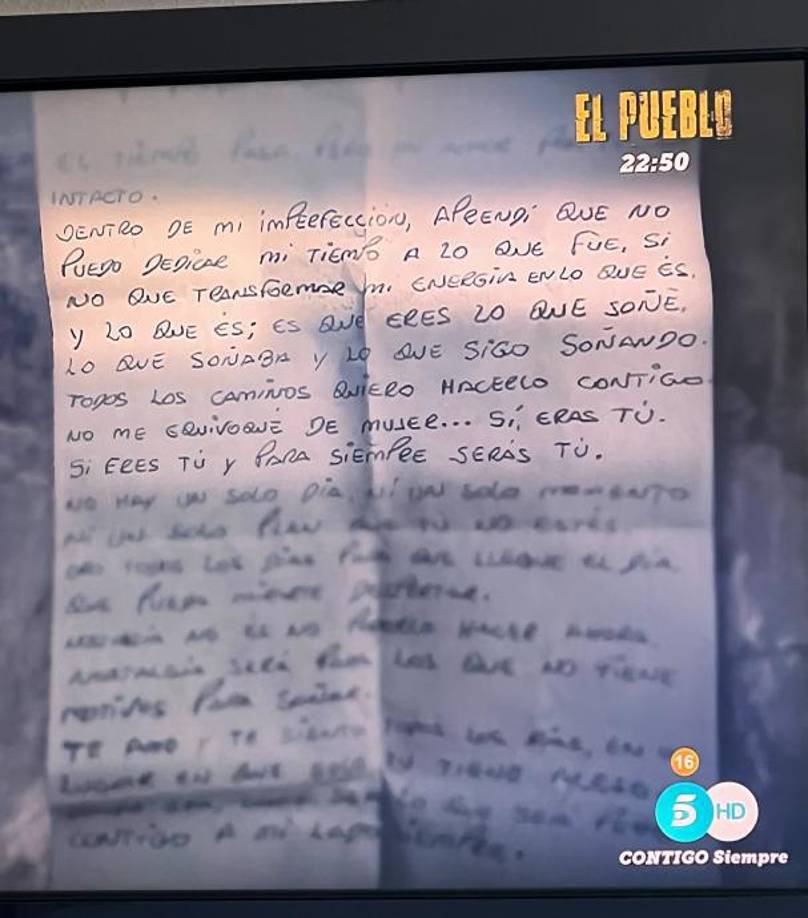 EL PUEBLO
22:50
EL TIEMPO PASA, PERO MI AMOR
INTACTO.
DENTRO DE MI IMPERFECCIÓN, APRENDÍ QUE NO
PUEDO DEDICAR MI TIEMPO A LO QUE FUE, SI
NO QUE TRANSFORMAR MI ENERGÍA EN LO QUE ÉS.
Y LO QUE ÉS; ES QUE ERES LO QUE SOÑÉ.
LO QUE SOÑABA Y LO QUE SIGO SOÑANDO.
TODOS LOS CAMINOS QUIERO HACERLO CONTIGO
NO ME EQUIVOQUÉ DE MUJER... SÍ, ERAS TÚ.
SI ERES TÚ Y PARA SIEMPRE SERÁS TÚ.
NO HAY UN SOLO DÍA, NI UN SOLO MOMENTO
NI UN SOLO PLAN QUE TÚ NO ESTÉS.
TODOS LOS DÍAS PARA QUE LLEGUE EL DÍA
QUE PUEDA DESPERTAR.
NO ES NO PODERLO HACER AHORA
NOSTALGIA SERÁ PARA LOS QUE NO TIENE
MOTIVOS PARA SOÑAR.
TE AMO Y TE SIENTO TODOS LOS DÍAS, EN
LUGAR EN QUE SOLO TÚ TIENE
LO QUE SEA
CONTIGO A MI LADO SIEMPRE.
16
5 HD
CONTIGO Siempre